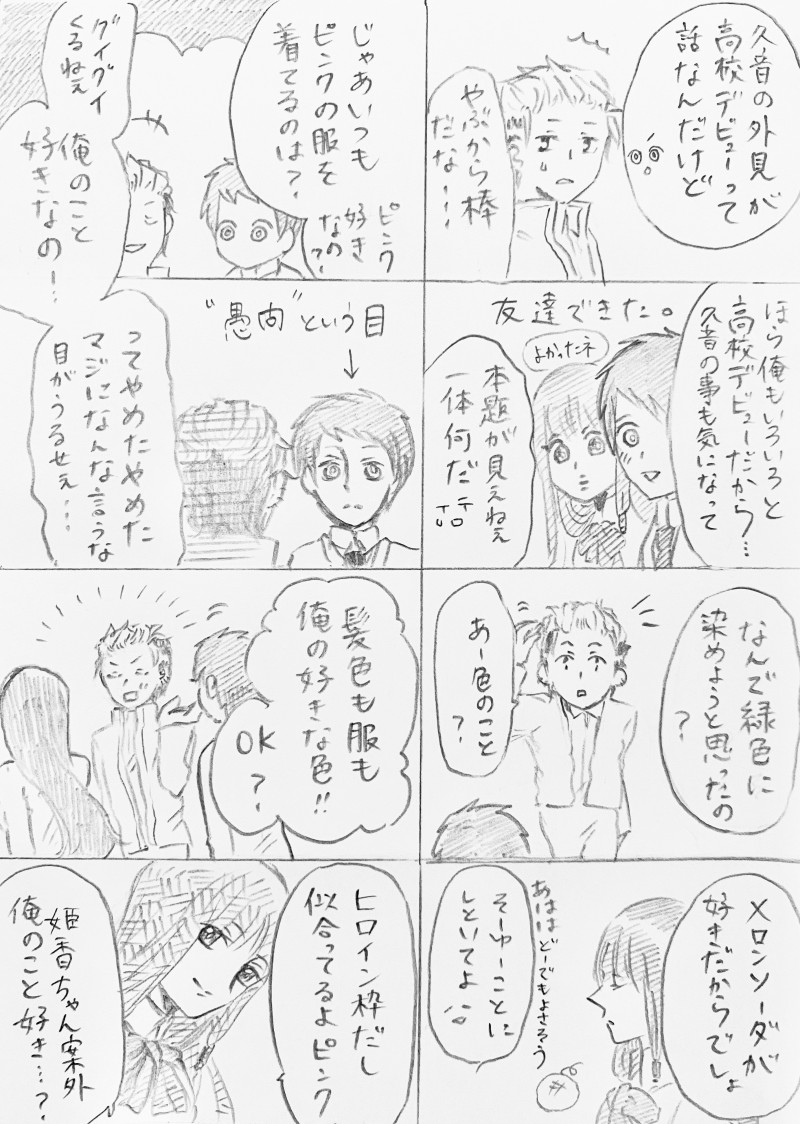 久音の外見が
高校デビューって
話なんだけど
やぶから棒
だな…
ほら俺もいろいろと
高校デビューだから…
久音の事も気になって
友達できた。
よかったネ
本題が見えねぇ
一体何だ
なんで緑色に
染めようと思ったの
?
あー色のこと
?
メロンソーダが
好きだからでしょ
あははどーでもよさそう
そーゆーことに
しといてよ
じゃあいつも
ピンクの服を
着てるのは?
ピンク
好き
なの?
グイグイ
くるねぇ
俺のこと
好きなの!
"愚向"という目
ってやめたやめた
マジになんな言うな
目がうるせぇ…
髪色も服も
俺の好きな色!!
OK
?
ヒロイン枠だし
似合ってるよピンク
姫香ちゃん案外
俺のこと好き…?